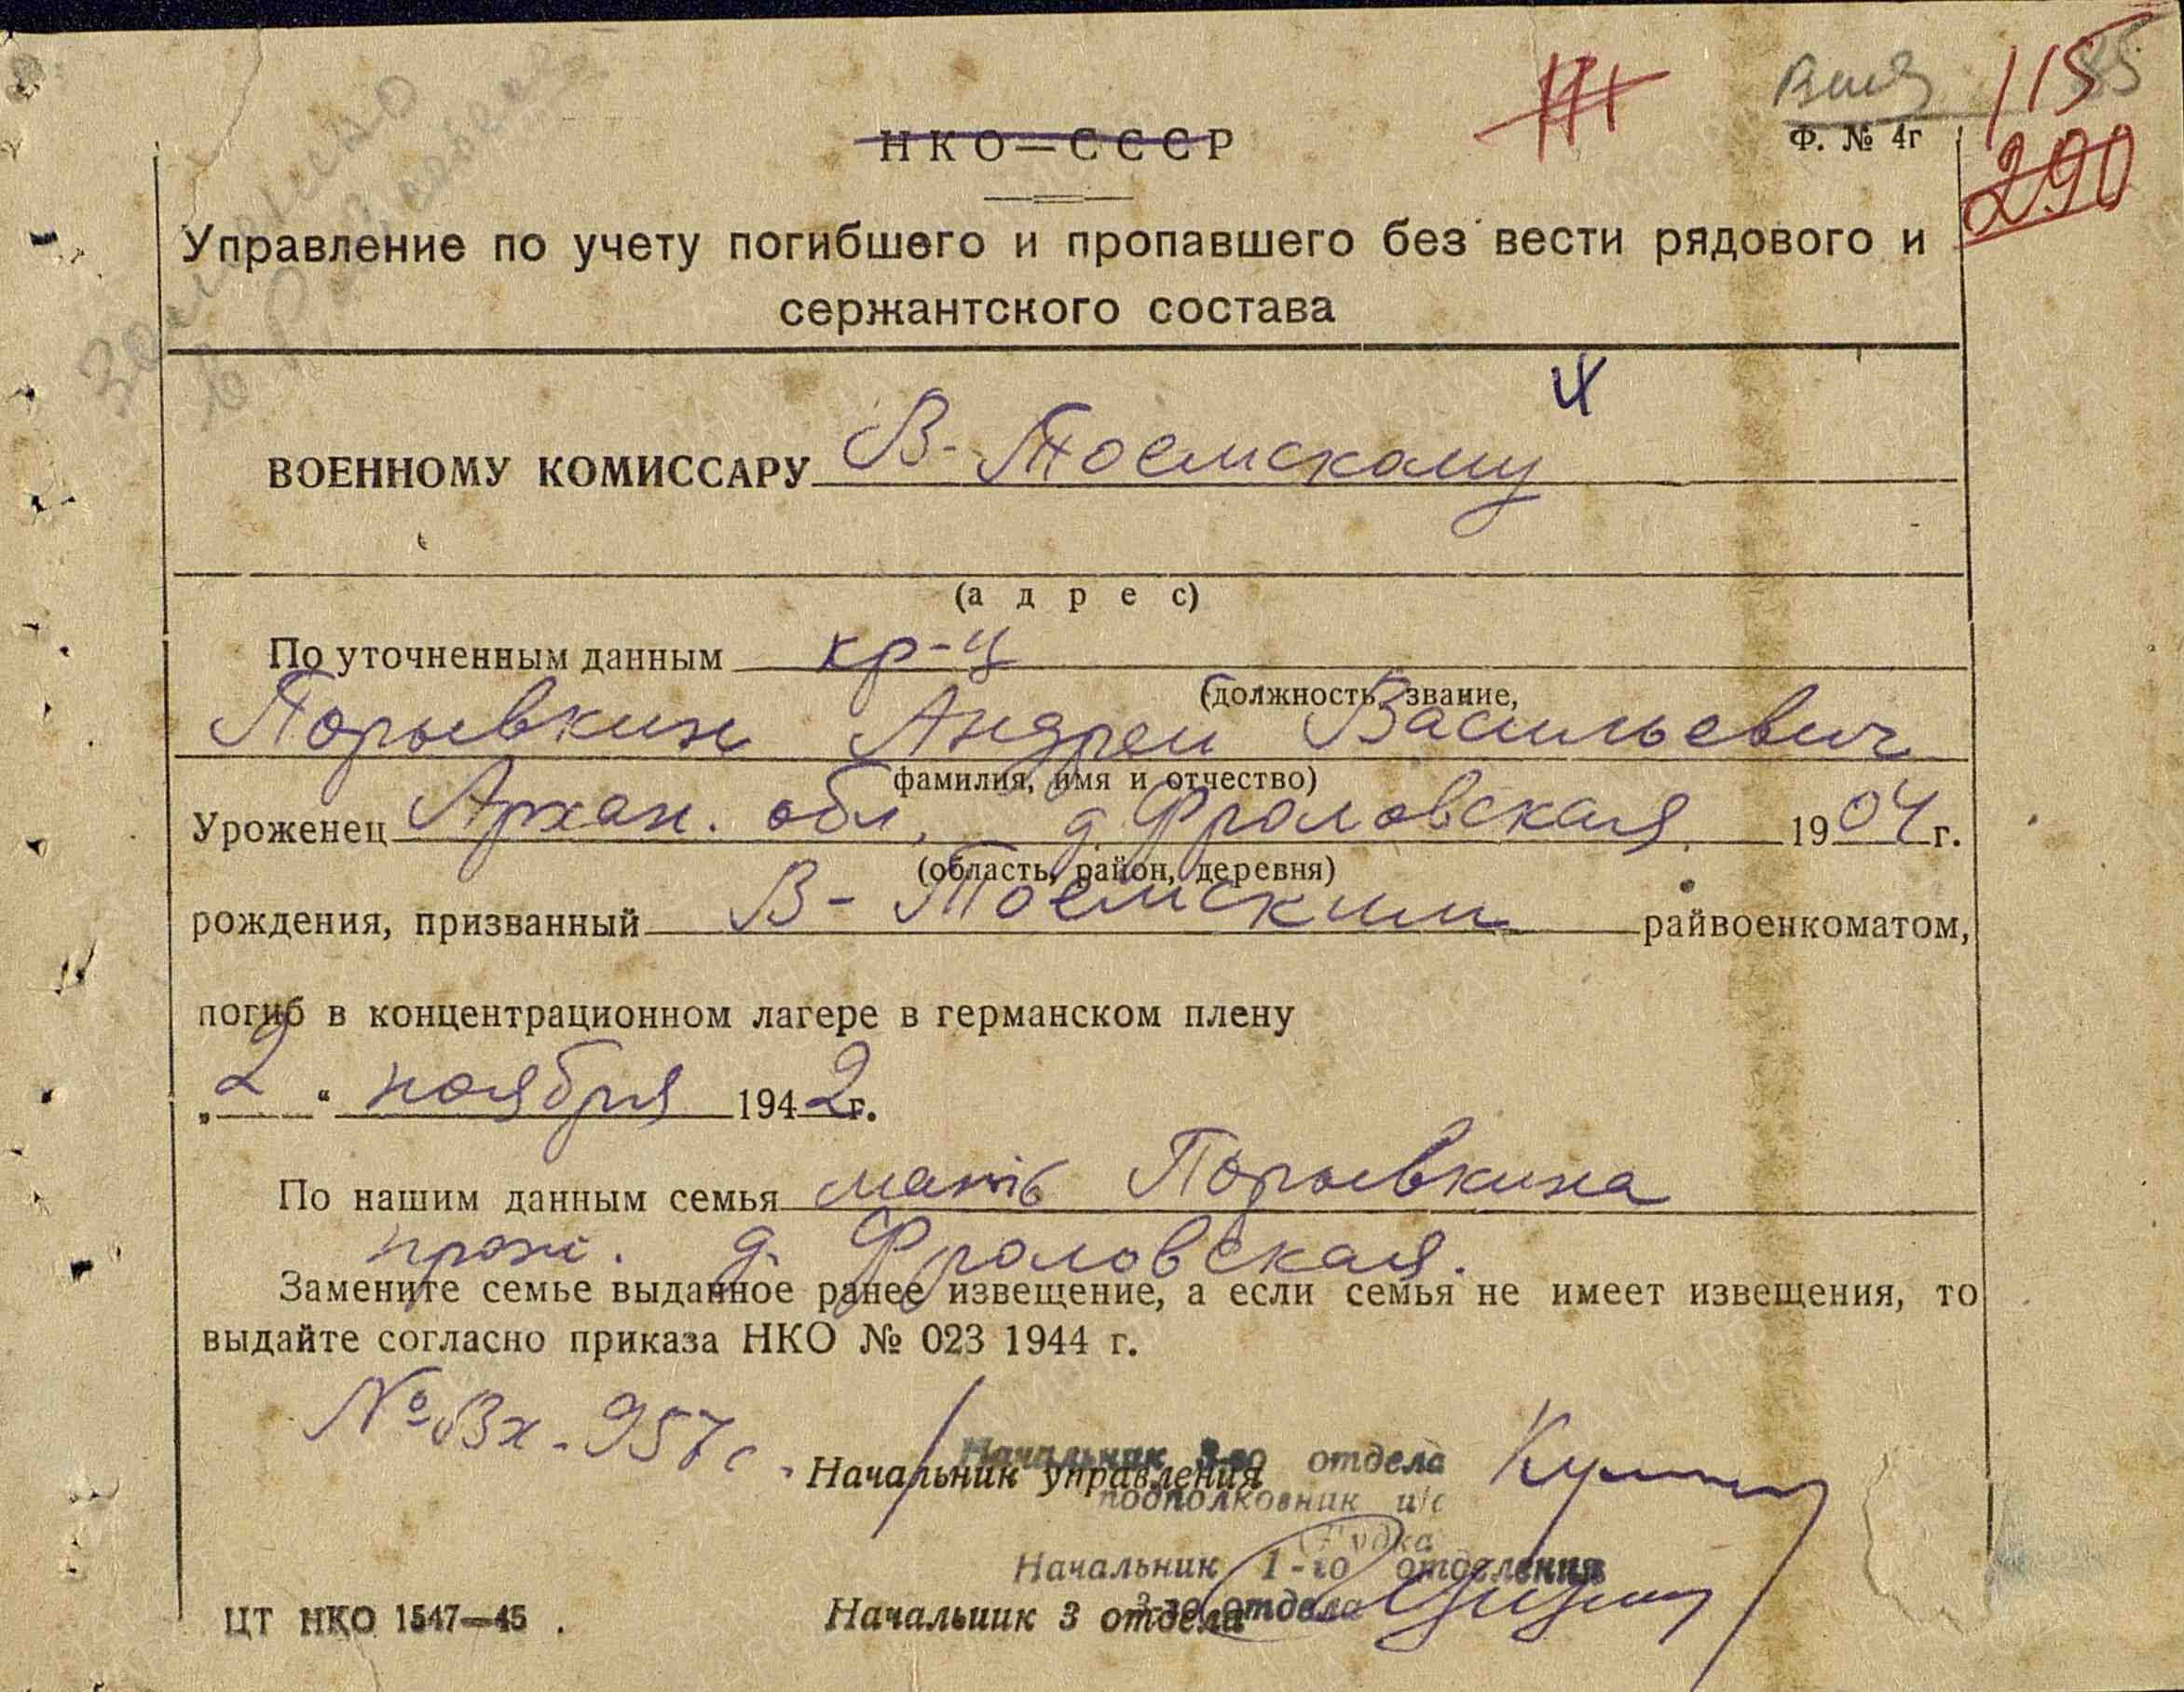 115
Ф. № 4г
290
НКО—СССР
Управление по учету погибшего и пропавшего без вести рядового и
сержантского состава
ВОЕННОМУ КОМИССАРУ В-Тоемскому
(адрес)
По уточненным данным кр-ц
(должность, звание,
Порывкин Андреи Васильевич
фамилия, имя и отчество)
Уроженец Архан. обл. д. Фроловская 1904 г.
(область, район, деревня)
рождения, призванный В-Тоемским райвоенкоматом,
погиб в концентрационном лагере в германском плену
„2“ ноября 1942 г.
По нашим данным семья мать Порывкина
прож. д. Фроловская.
Замените семье выданное ранее извещение, а если семья не имеет извещения, то
выдайте согласно приказа НКО № 023 1944 г.
№ Вх-957с.
Начальник 3-го отдела
Начальник управления
подполковник и/с
Начальник 1-го отделения
3-го отдела
Начальник 3 отдела
ЦТ НКО 1547—45.